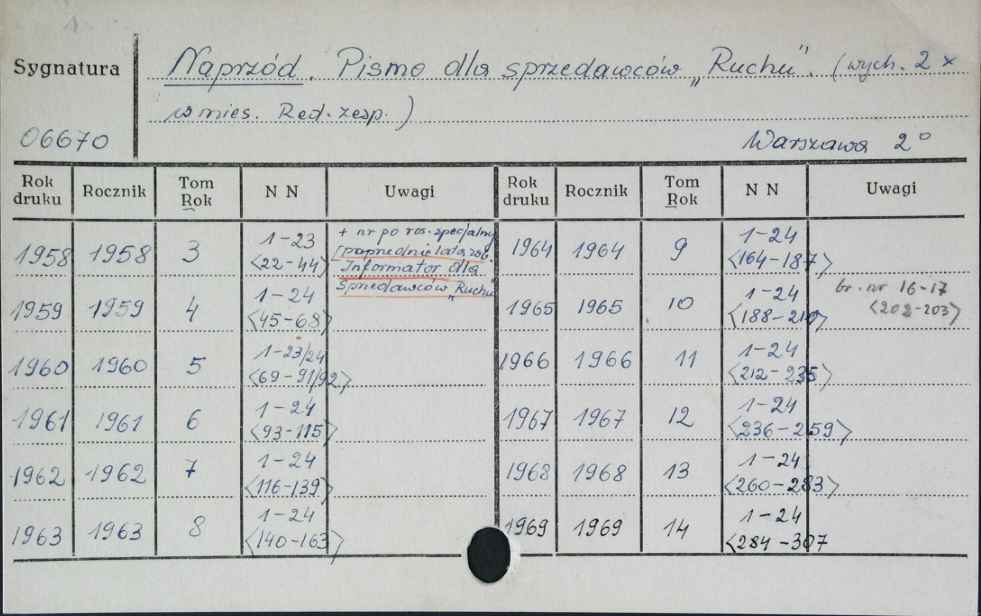 Sygnatura
Naprzód. Pismo dla sprzedawców „Ruchu". (wych. 2 x
w mies. Red. zesp.)
06670
Warszawa 2°
Rok druku Rocznik Tom Rok N N Uwagi Rok druku Rocznik Tom Rok N N Uwagi
1958 1958 3 1-23 <22-44> + nr po ros. specjalny
[poprzednie lata zob.
Informator dla
Sprzedawców „Ruchu"
1964 1964 9 1-24 <164-187>
1959 1959 4 1-24 <45-68>
1965 1965 10 1-24 <188-211> br. nr 16-17 <202-203>
1960 1960 5 1-23/24 <69-91/92>
1966 1966 11 1-24 <212-235>
1961 1961 6 1-24 <93-115>
1967 1967 12 1-24 <236-259>
1962 1962 7 1-24 <116-139>
1968 1968 13 1-24 <260-283>
1963 1963 8 1-24 <140-163>
1969 1969 14 1-24 <284-307